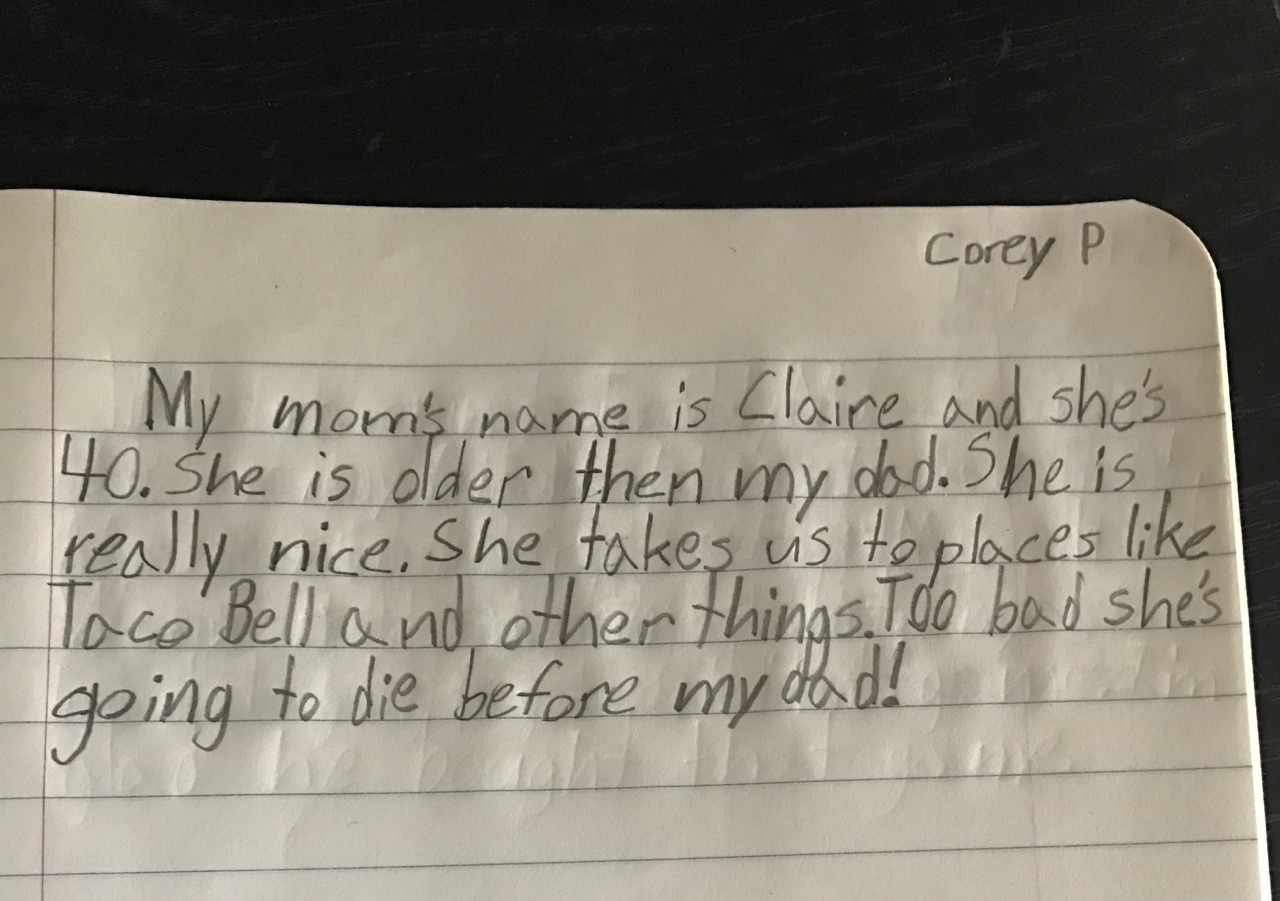 Corey P
My mom's name is Claire and she's
40. She is older then my dad. She is
really nice. She takes us to places like
Taco Bell and other things. Too bad she's
going to die before my dad!